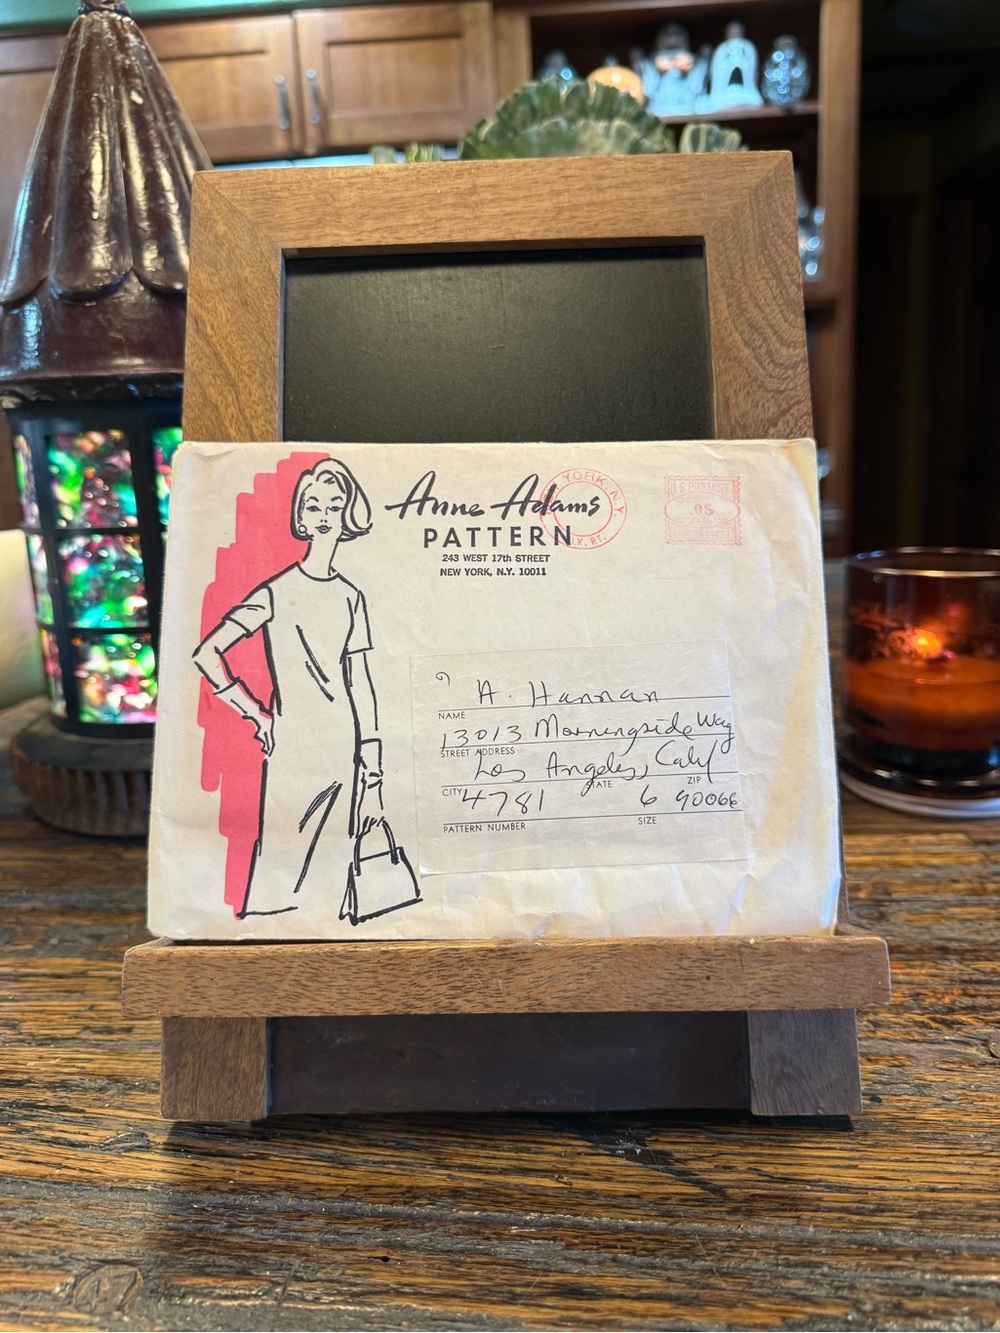 Anne Adams
PATTERN
243 WEST 17th STREET
NEW YORK, N.Y. 10011
YORK, N.Y.
U.S. POSTAGE
.05
A. Hannan
NAME
13013 Morningside Way
STREET ADDRESS
Los Angeles, Calif
CITY STATE ZIP
4781 6 90066
PATTERN NUMBER SIZE